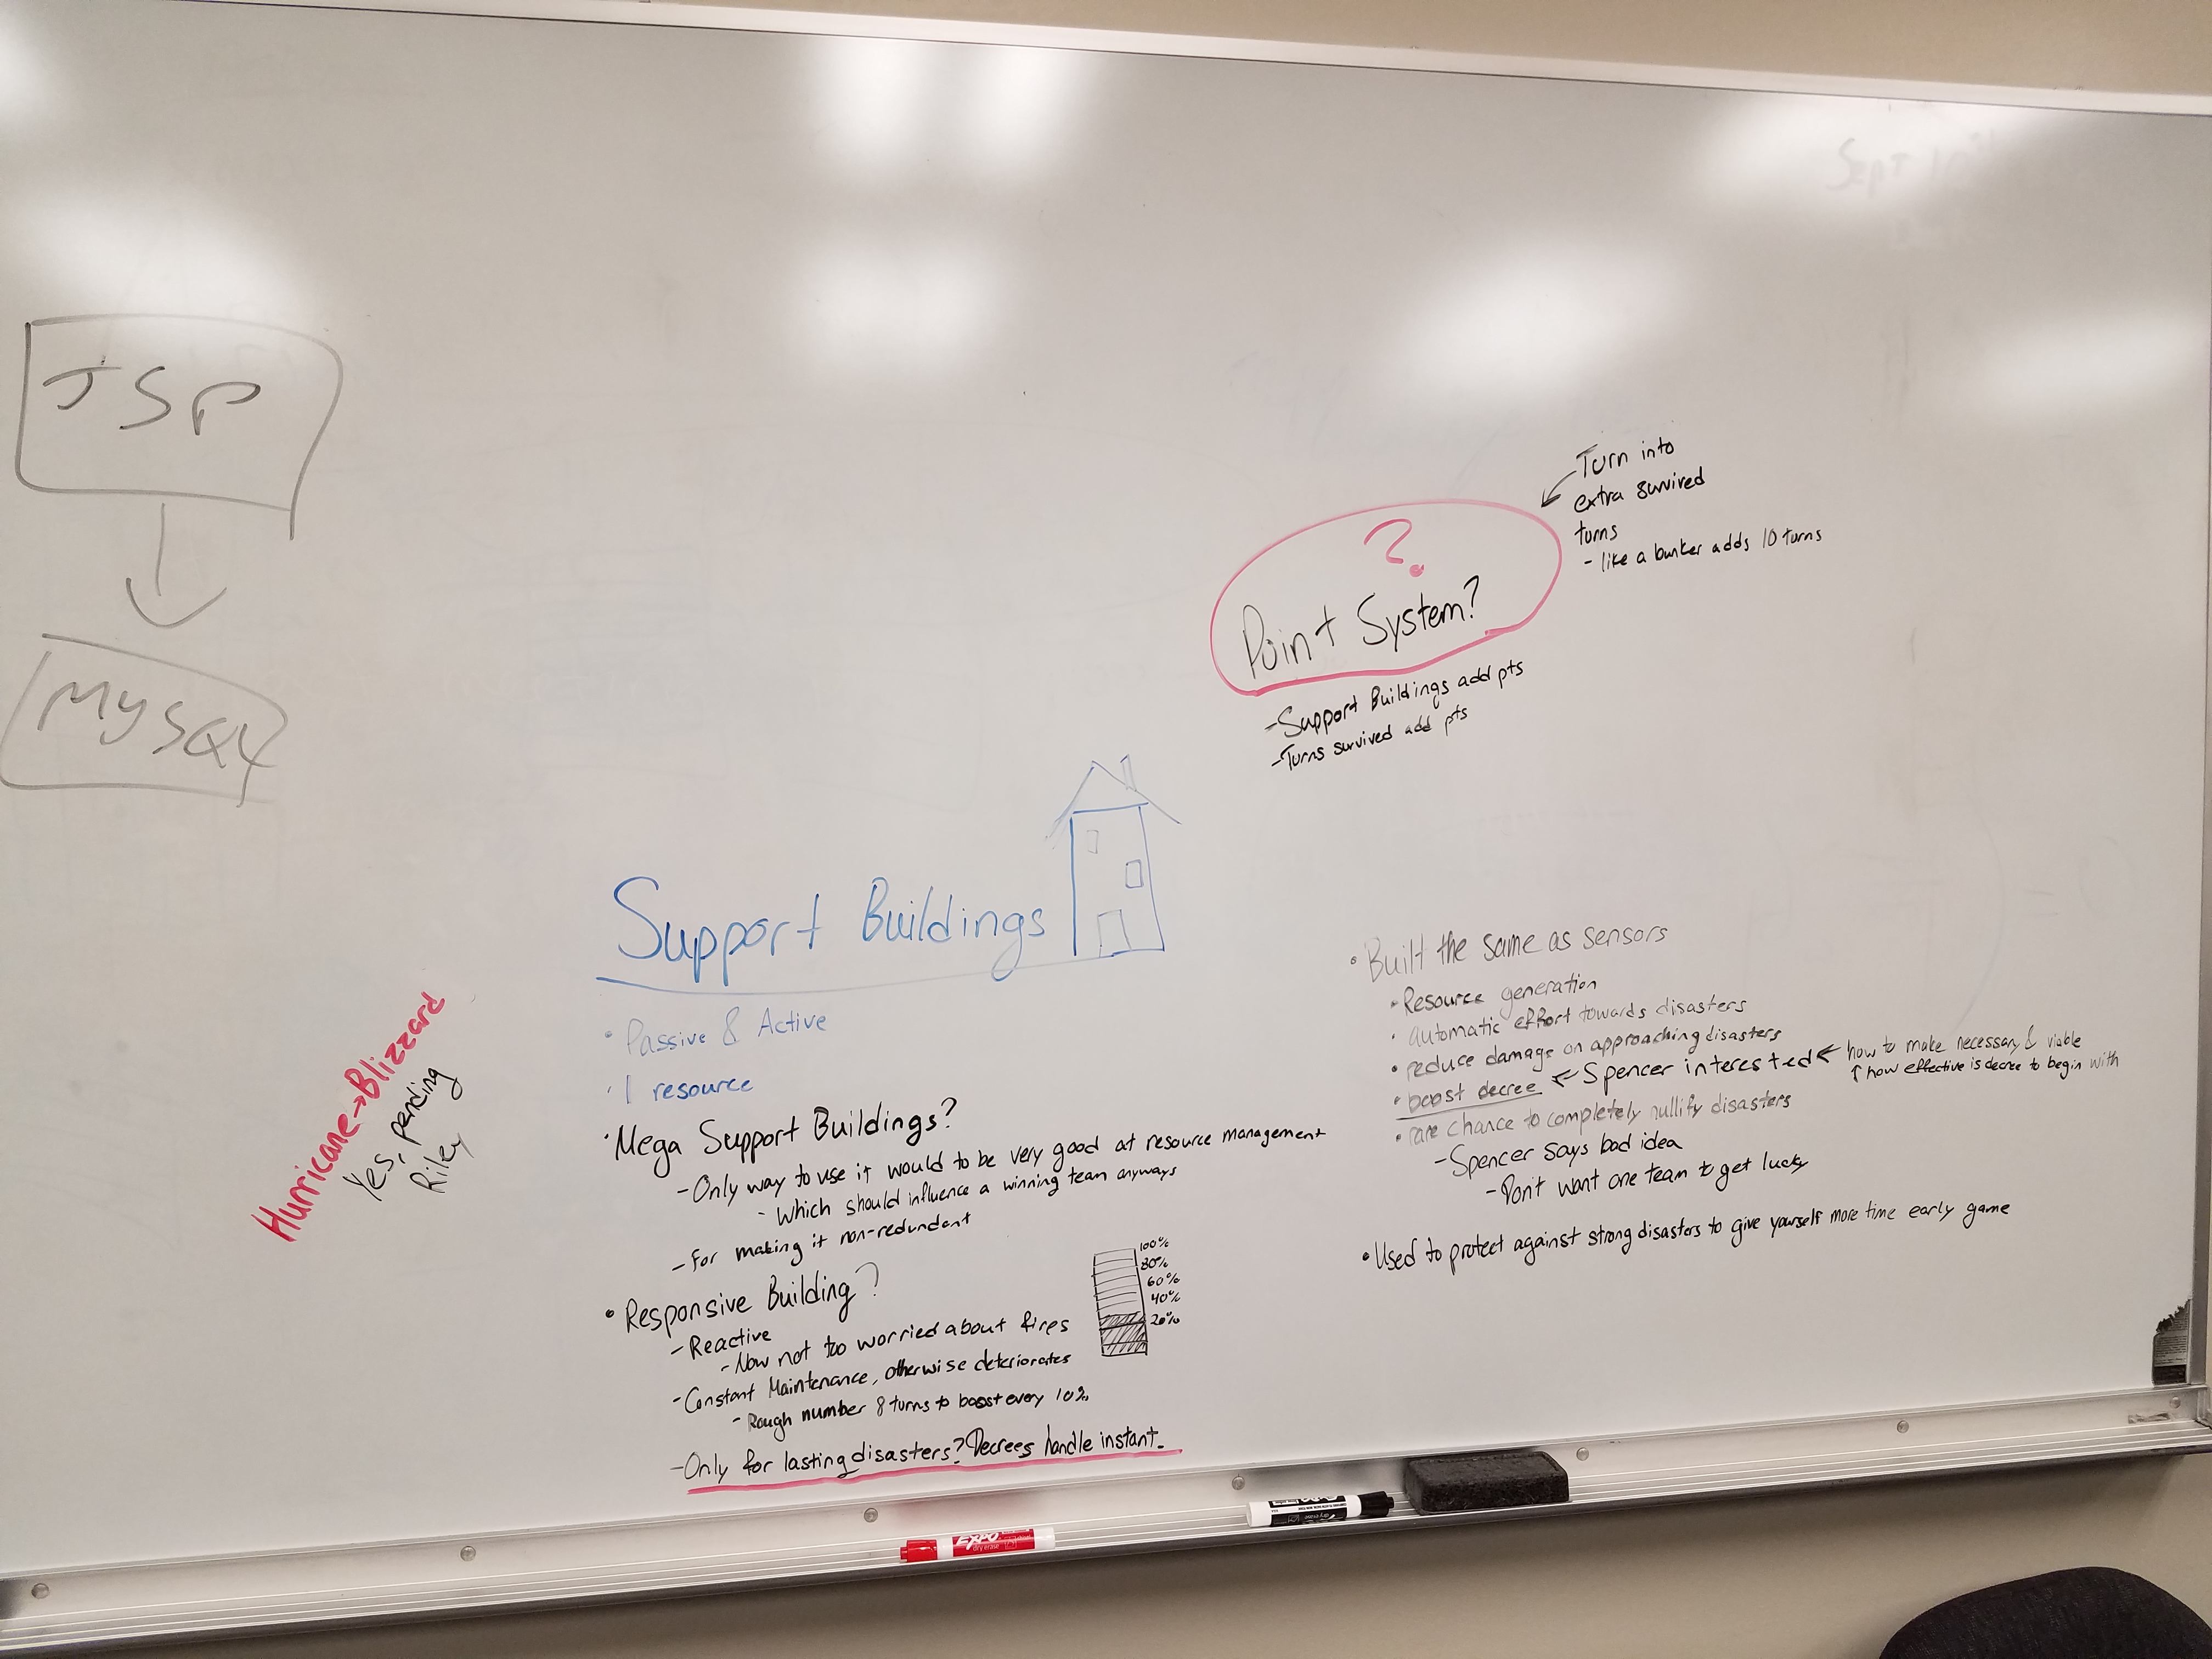 JSP
MySQL
Turn into
extra survived
turns
- like a bunker adds 10 turns
?
Point System?
-Support Buildings add pts
-Turns survived add pts
Support Buildings
• Passive & Active
• 1 resource
• Mega Support Buildings?
-Only way to use it would to be very good at resource management
- Which should influence a winning team anyways
- For making it non-redundant
• Responsive Building?
-Reactive
-Now not too worried about fires
-Constant Maintenance, otherwise deteriorates
- Rough number 8 turns to boost every 10%
-Only for lasting disasters? Decrees handle instant.
100%
80%
60%
40%
20%
Hurricane→Blizzard
Yes, pending
Riley
• Built the same as sensors
• Resource generation
• automatic effort towards disasters
• reduce damage on approaching disasters
• boost decree ← Spencer interested ← how to make necessary & viable
↑ how effective is decree to begin with
• rare chance to completely nullify disasters
-Spencer says bad idea
-Don't want one team to get lucky
• Used to protect against strong disasters to give yourself more time early game
EXPO
dry erase